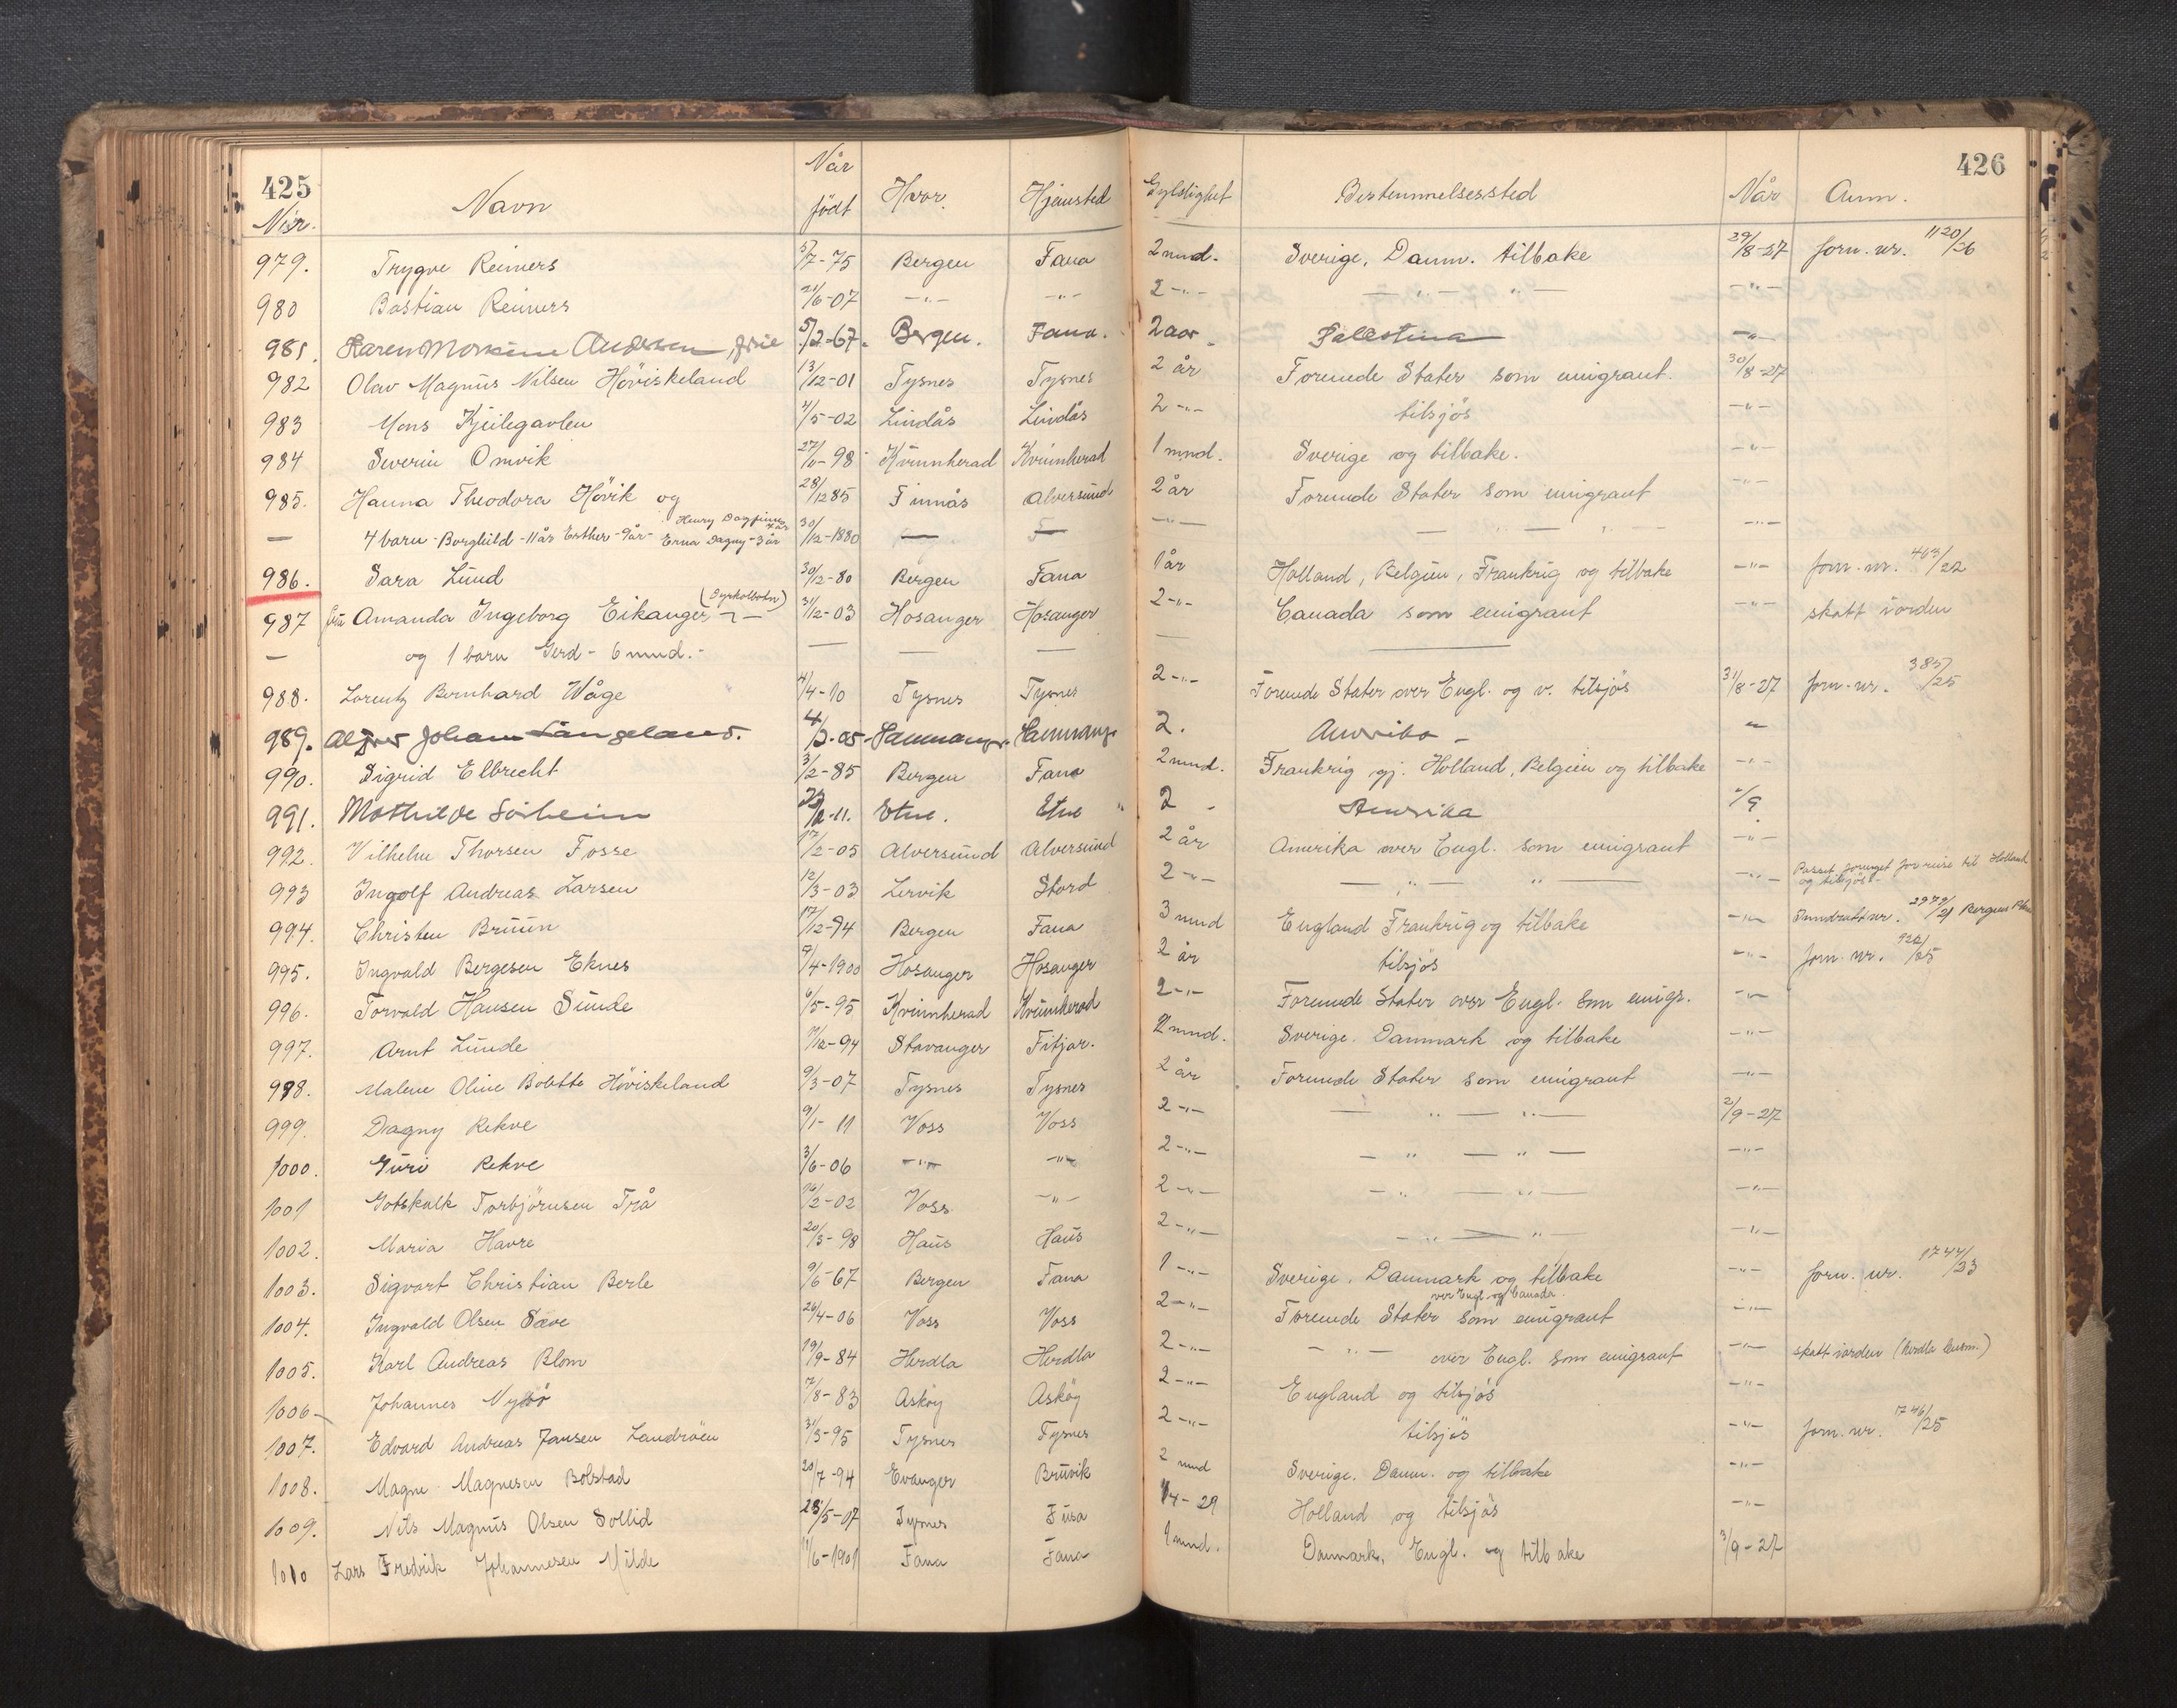 425 426
Når
Nr. Navn født Hvor. Hjemsted Gyldighet Bestemmelsessted Når Anm.
979. Trygve Reimers 5/7-75 Bergen Fana 2 mnd. Sverige, Danm. tilbake 29/8-27 forn. nr. 1120/26
980 Bastian Reimers 21/6-07 -"- -"- 2 -"- -"- "- -"-
981. Karen Andersen, frue 5/2-67. Bergen. Fana. 2 aar. Palestina -"-
982 Olav Magnus Nilsen Höviskeland 13/12-01 Tysnes Tysnes 2 år Forende Stater som emigrant. 30/8-27
983 Mons 4/5-02 Lindås Lindås 2 -"- tilsjös -"-
984 Severin Omvik 27/11-98 Kvinnherad Kvinnherad 1 mnd. Sverige og tilbake. -"-
985. Hanna Theodora Hövik og 28/12 85 Finnås Alversund 2 år Forende Stater som emigrant -"-
— 4 barn - Borghild - 11 år Esther - 9 år - Henry Dagfinn 7 år Erna Dagny - 3 år 30/12-1880 — — -"- — " — " — -"-
986. Sara Lund 30/12-80 Bergen Fana 1 år Holland, Belgien, Frankrig og tilbake -"- forn. nr. 463/22
987 frue Amanda Ingeborg Eikanger (Dyrkolbotn) 31/12-03 Hosanger Hosanger 2 -"- Canada som emigrant -"- skatt iorden
— og 1 barn Gerd - 6 mnd. - — — — — —
988. Lorentz Bernhard Våge 4/4-10 Tysnes Tysnes 2 -"- Forende Stater over Engl. og v. tilsjös 31/8-27 forn. nr. 385/25
989. Alfred Johan Langeland. 4/3-05 Samnanger Samnanger 2. Amerika - "
990. Sigrid Elbrecht 3/2-85 Bergen Fana 2 mnd. Frankrig gj. Holland, Belgien og tilbake -"-
991. Mathilde Sörheim -11. Etne. Etne " 2 - Amerika 1/9.
992. Vilhelm Thorsen Fosse 17/2-05 Alversund Alversund 2 år Amerika over Engl. som emigrant -"-
993 Ingolf Andreas Larsen 12/3-03 Lervik Stord 2 -"- — " — " — -"- Passet forenget for reise til Holland og tilsjös -
994. Christen Bruun 17/12-94 Bergen Fana 3 mnd England Frankrig og tilbake -"- Inndratt nr. 2979/21 Bergens Pkm
995. Ingvald Bergesen Eknes 7/4-1900 Hosanger Hosanger 2 år tilsjös -"- forn. nr. 922/25
996. Torvald Hansen Sunde 6/5-95 Kvinnherad Kvinnherad 2 -"- Forende Stater over Engl. som emigr. -"-
997. Arnt Lunde 7/12-94 Stavanger Fitjar. 2 mnd. Sverige. Danmark og tilbake -"-
998. Malene Oline Bolette Höviskeland 9/3-07 Tysnes Tysnes 2 år Forende Stater som emigrant -"-
999. Dagny Rekve 9/1-11 Voss Voss 2 -"- — " — " — 2/9-27
1000. Guri Rekve 3/6-06 -"- -"- 2 -"- — " — " — -"-
1001 Gotskalk Torbjörnsen Trå 16/2-02 Voss -"- 2 -"- — " — " — -"-
1002. Maria Havre 20/3-98 Haus Haus 2 -"- — " — " — -"-
1003. Sigvart Christian Berle 9/6-67 Bergen Fana 1 -"- Sverige. Danmark og tilbake -"- forn. nr. 1744/23
1004. Ingvald Olsen Sæve 26/4-06 Voss Voss 2 -"- Forende Stater over Engl. og Canada. som emigrant -"-
1005. Karl Andreas Blom 19/9-84 Herdla Herdla 2 -"- — " — over Engl. som emigrant -"- skatt iorden (Herdla Lensm.)
1006 - Johannes 7/8-83 Asköy Asköy 2 -"- England og tilsjös -"-
1007. Edvard Andreas Jansen Landröen 31/3-95 Tysnes Tysnes 2 -"- tilsjös -"- forn. nr. 1746/25
1008. Magne Magnesen Bolstad 20/7-94 Evanger Bruvik 2 mnd Sverige. Danm. og tilbake -"-
1009. Nils Magnus Olsen Sollid 28/5-07 Tysnes Fusa 1/4-29 Holland og tilsjös -"-
1010 Lars Fredrik Johannesen Milde 11/6-1901 Fana Fana 1 mnd. Danmark, Engl. og tilbake 3/9-27